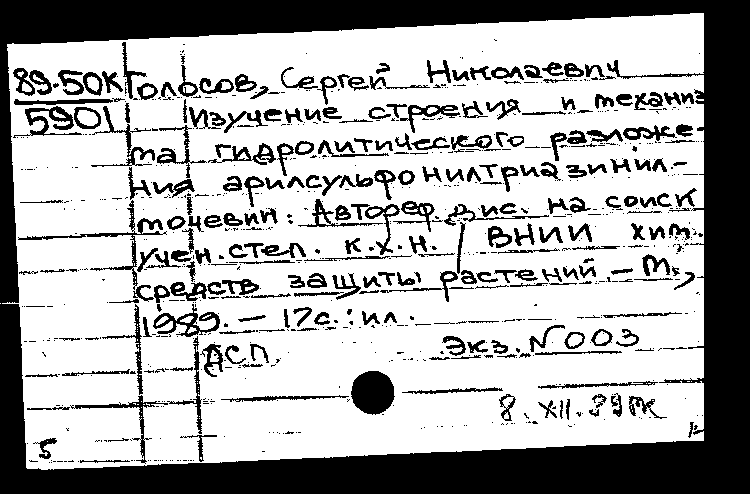 89-50К Голосов, Сергей Николаевич
5901 Изучение строения и механиз
ма гидролитического разложе-
ния арилсульфонилтриазинил-
мочевин: Автореф. дис. на соиск
учен. степ. к.х.н. / ВНИИ хим.
средств защиты растений. – М.,
1989. – 17с.: ил.
ДСП. Экз. №003
8. XII. 89
5